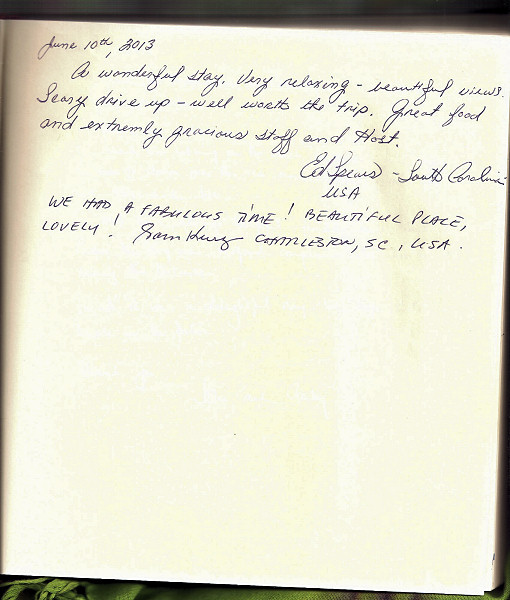 June 10th, 2013
A wonderful stay. Very relaxing - beautiful views.
Scary drive up - well worth the trip. Great food
and extremly gracious staff and Host.
Ed Spears - South Carolina
USA
WE HAD A FABULOUS TIME! BEAUTIFUL PLACE,
LOVELY! CHARLESTON, SC, USA.